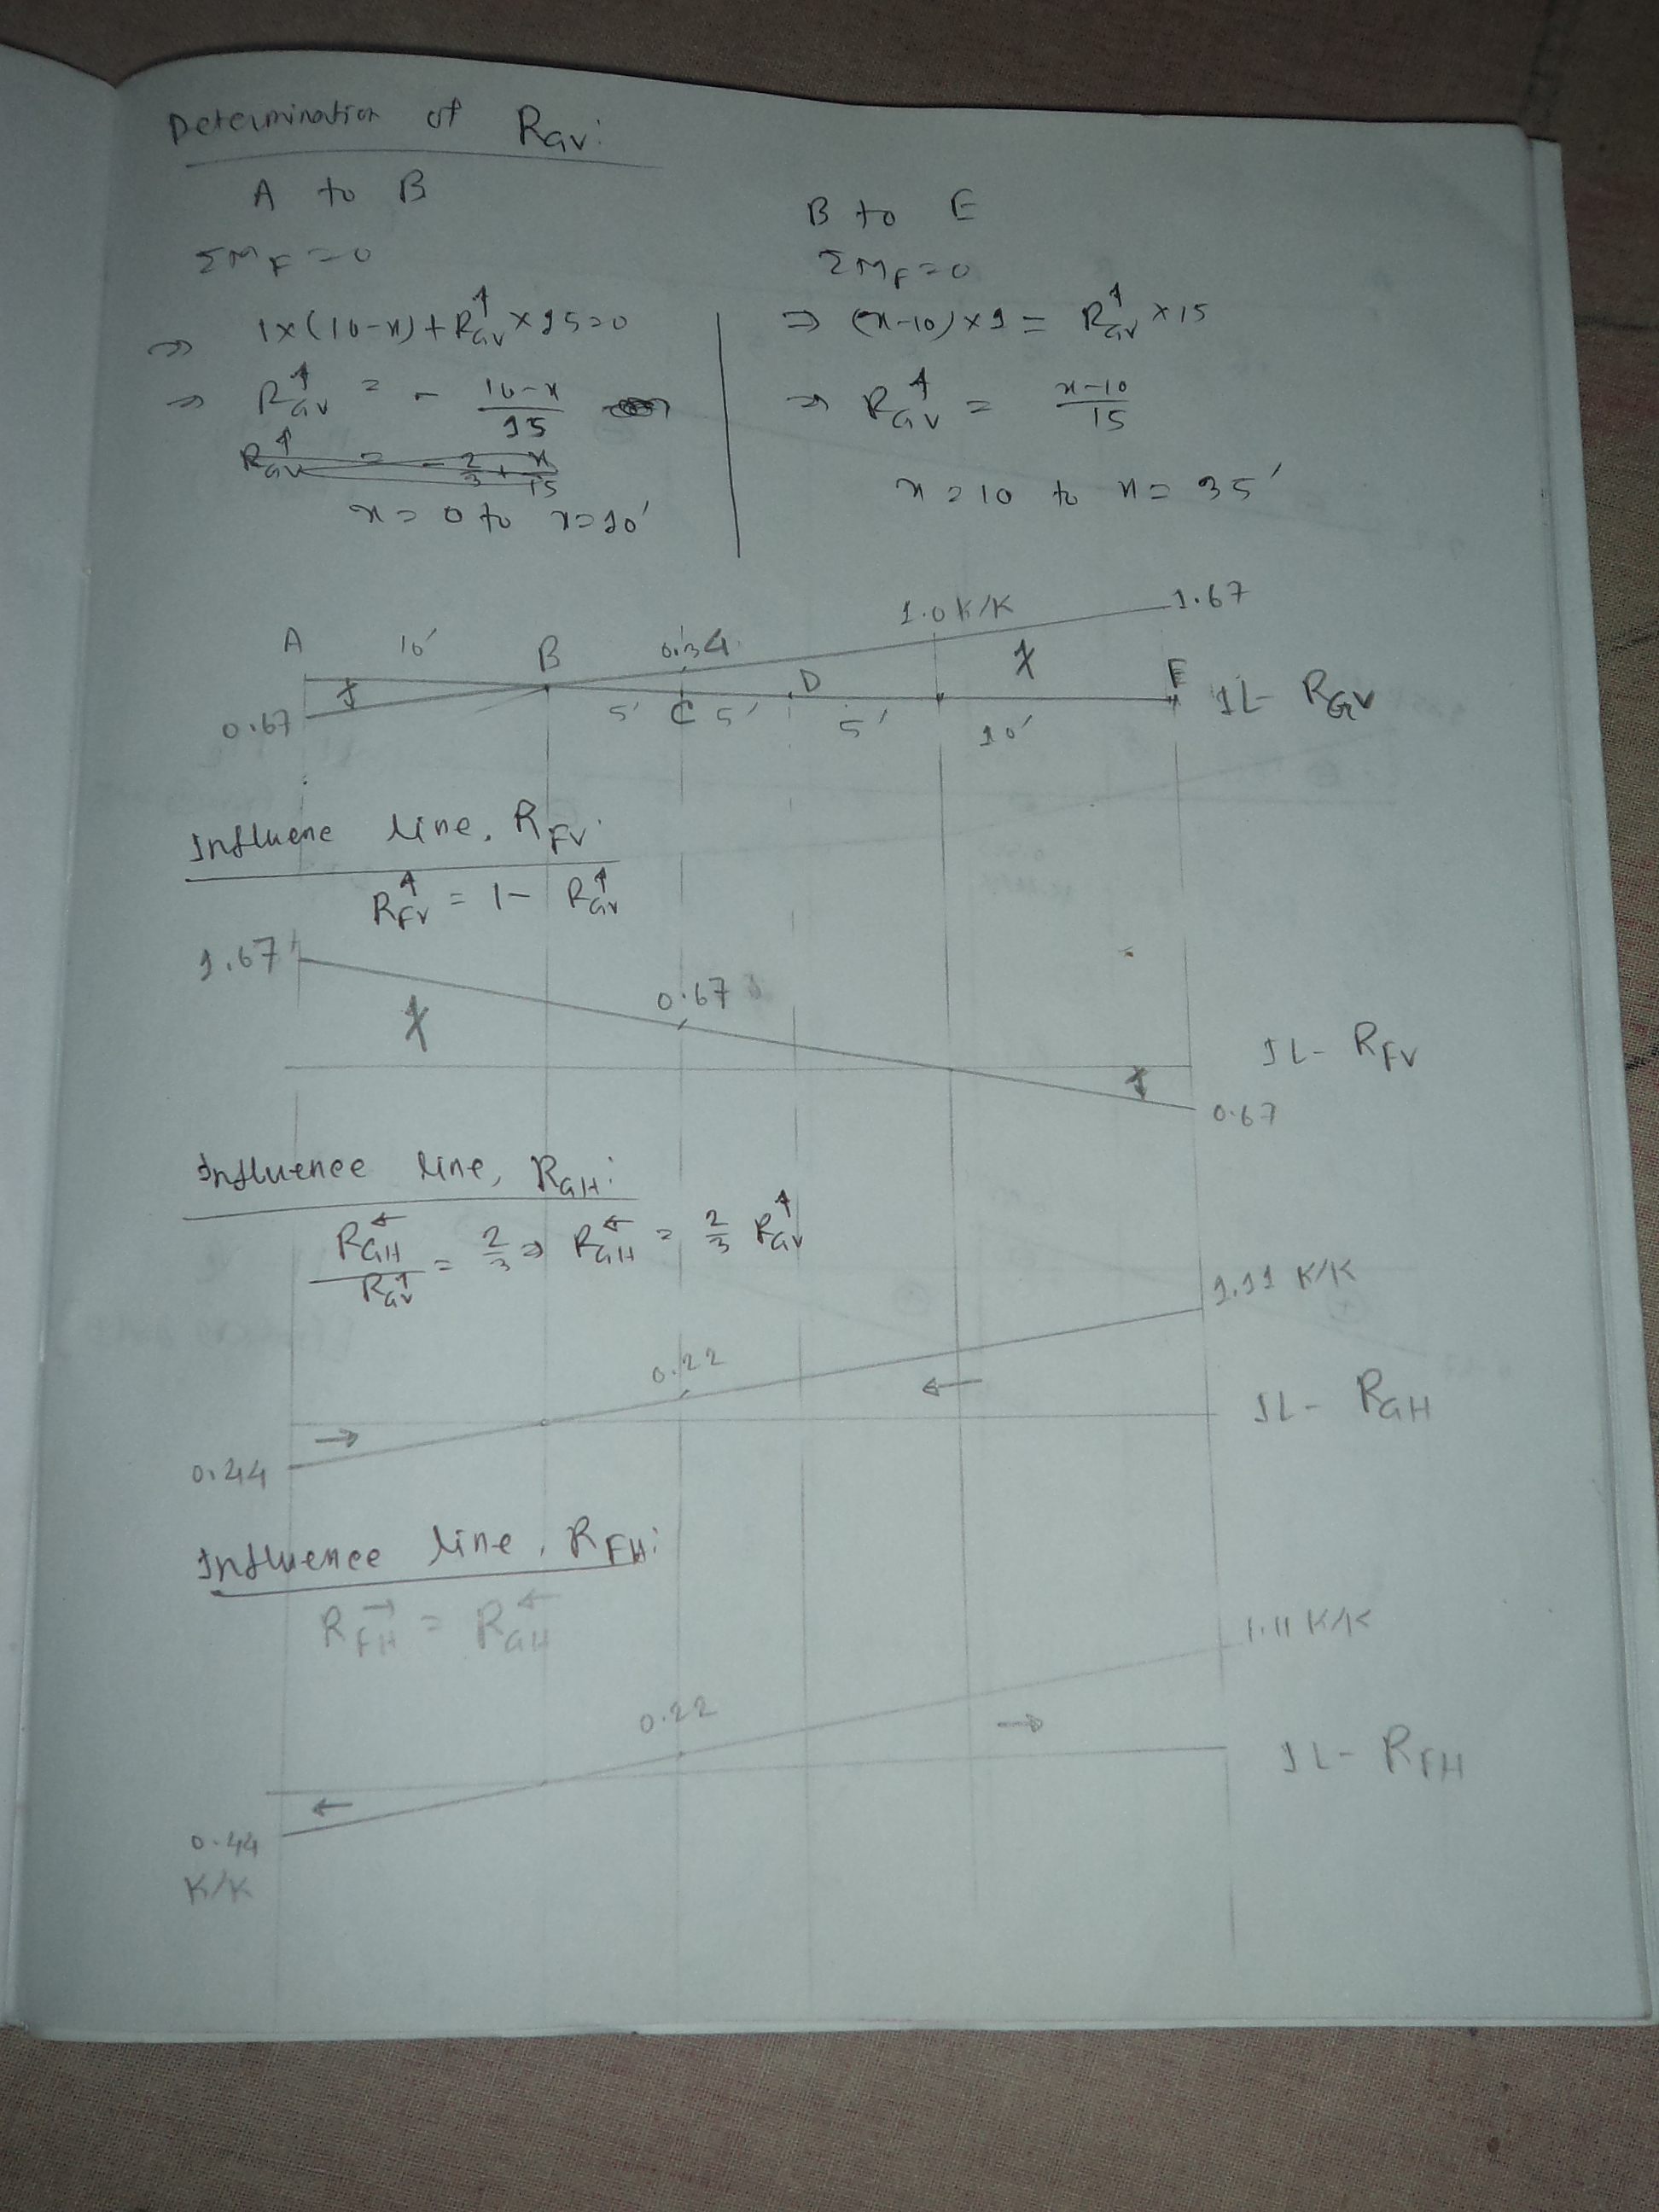 Determination of R_GV:
A to B
ΣM_F = 0
⇒ 1×(10-x) + R_GV↑ × 15 = 0
⇒ R_GV↑ = - (10-x)/15
x = 0 to x = 10'
B to E
ΣM_F = 0
⇒ (x-10)×1 = R_GV↑ × 15
⇒ R_GV↑ = (x-10)/15
x = 10 to x = 35'
A 10' B 0.34 1.0 K/K 1.67
D E
0.67 5' C 5' 5' 10' IL- R_GV
Influene line, R_FV:
R_FV↑ = 1 - R_GV↑
1.67 0.67
IL- R_FV
0.67
Influence line, R_GH:
R_GH← / R_GV↑ = 2/3 ⇒ R_GH← = 2/3 R_GV↑
1.11 K/K
0.22
← IL- R_GH
→
0.44
Influence line, R_FH:
R_FH→ = R_GH←
1.11 K/K
0.22
→ IL- R_FH
←
0.44
K/K